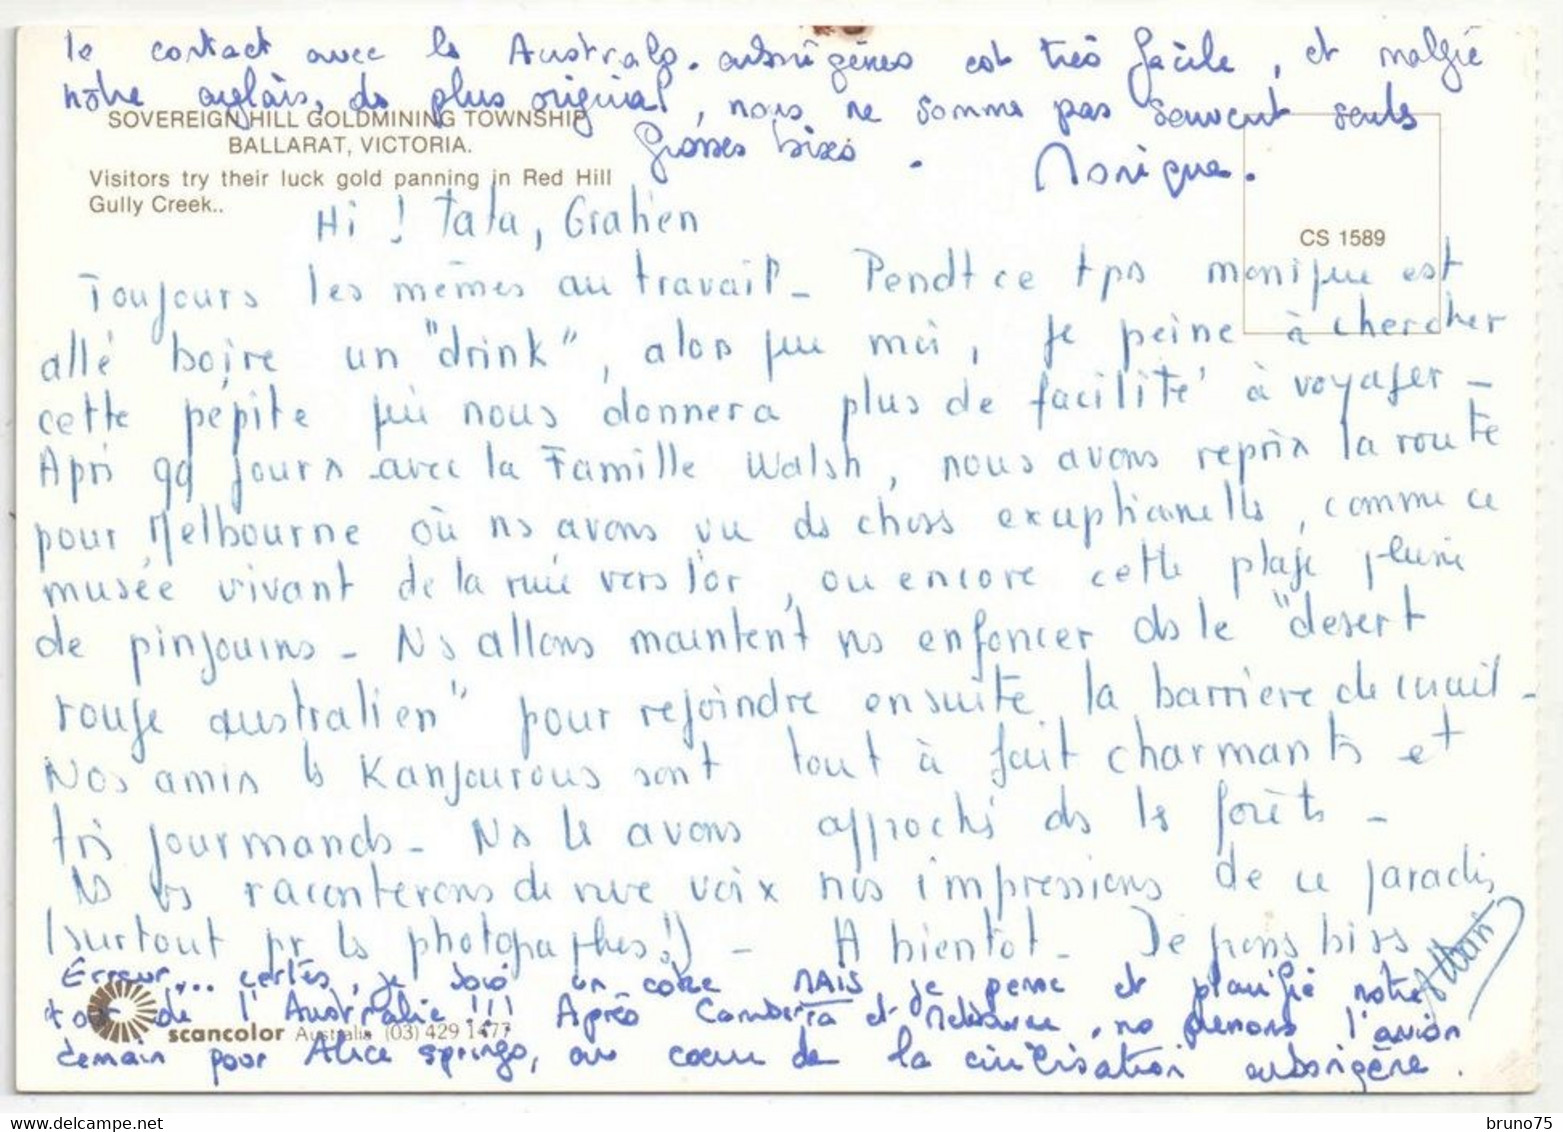 le contact avec ls Australo-aborigènes est très facile, et malgré
notre anglais, ds plus original, nous ne somme pas souvent seuls
SOVEREIGN HILL GOLDMINING TOWNSHIP
BALLARAT, VICTORIA.
Grosses bises. Monique.
Visitors try their luck gold panning in Red Hill
Gully Creek..
CS 1589
Hi! Tata, Gratien
Toujours les mêmes au travail - Pendt ce tps monique est
allé boire un "drink", alors que moi, je peine à chercher
cette pépite qui nous donnera plus de facilité à voyager -
Aprs qq jours avec la Famille Walsh, nous avons repris la route
pour Melbourne où ns avons vu ds choses exceptionnells, comme ce
musée vivant de la ruée vers l'or, ou encore cette plage pleine
de pingouins - Ns allons maintent ns enfoncer ds le "desert
rouge australien" pour rejoindre ensuite la barriere de corail -
Nos amis ls Kangourous sont tout à fait charmants et
trs gourmands - Ns ls avons approchés ds ls forêts -
Ns vs raconterons de vive voix nos impressions de ce paradis
(surtout pr ls photographes!) - A bientot - De gros biss
Alban
Erreur... certes, je bois un coke MAIS je pense et planifie notre
tour de l'Australie!!! Après Camberra et Melbourne, ns prenons l'avion
scancolor Australia (03) 429 1477
demain pour Alice springs, au coeur de la civilisation aborigène.
bruno75